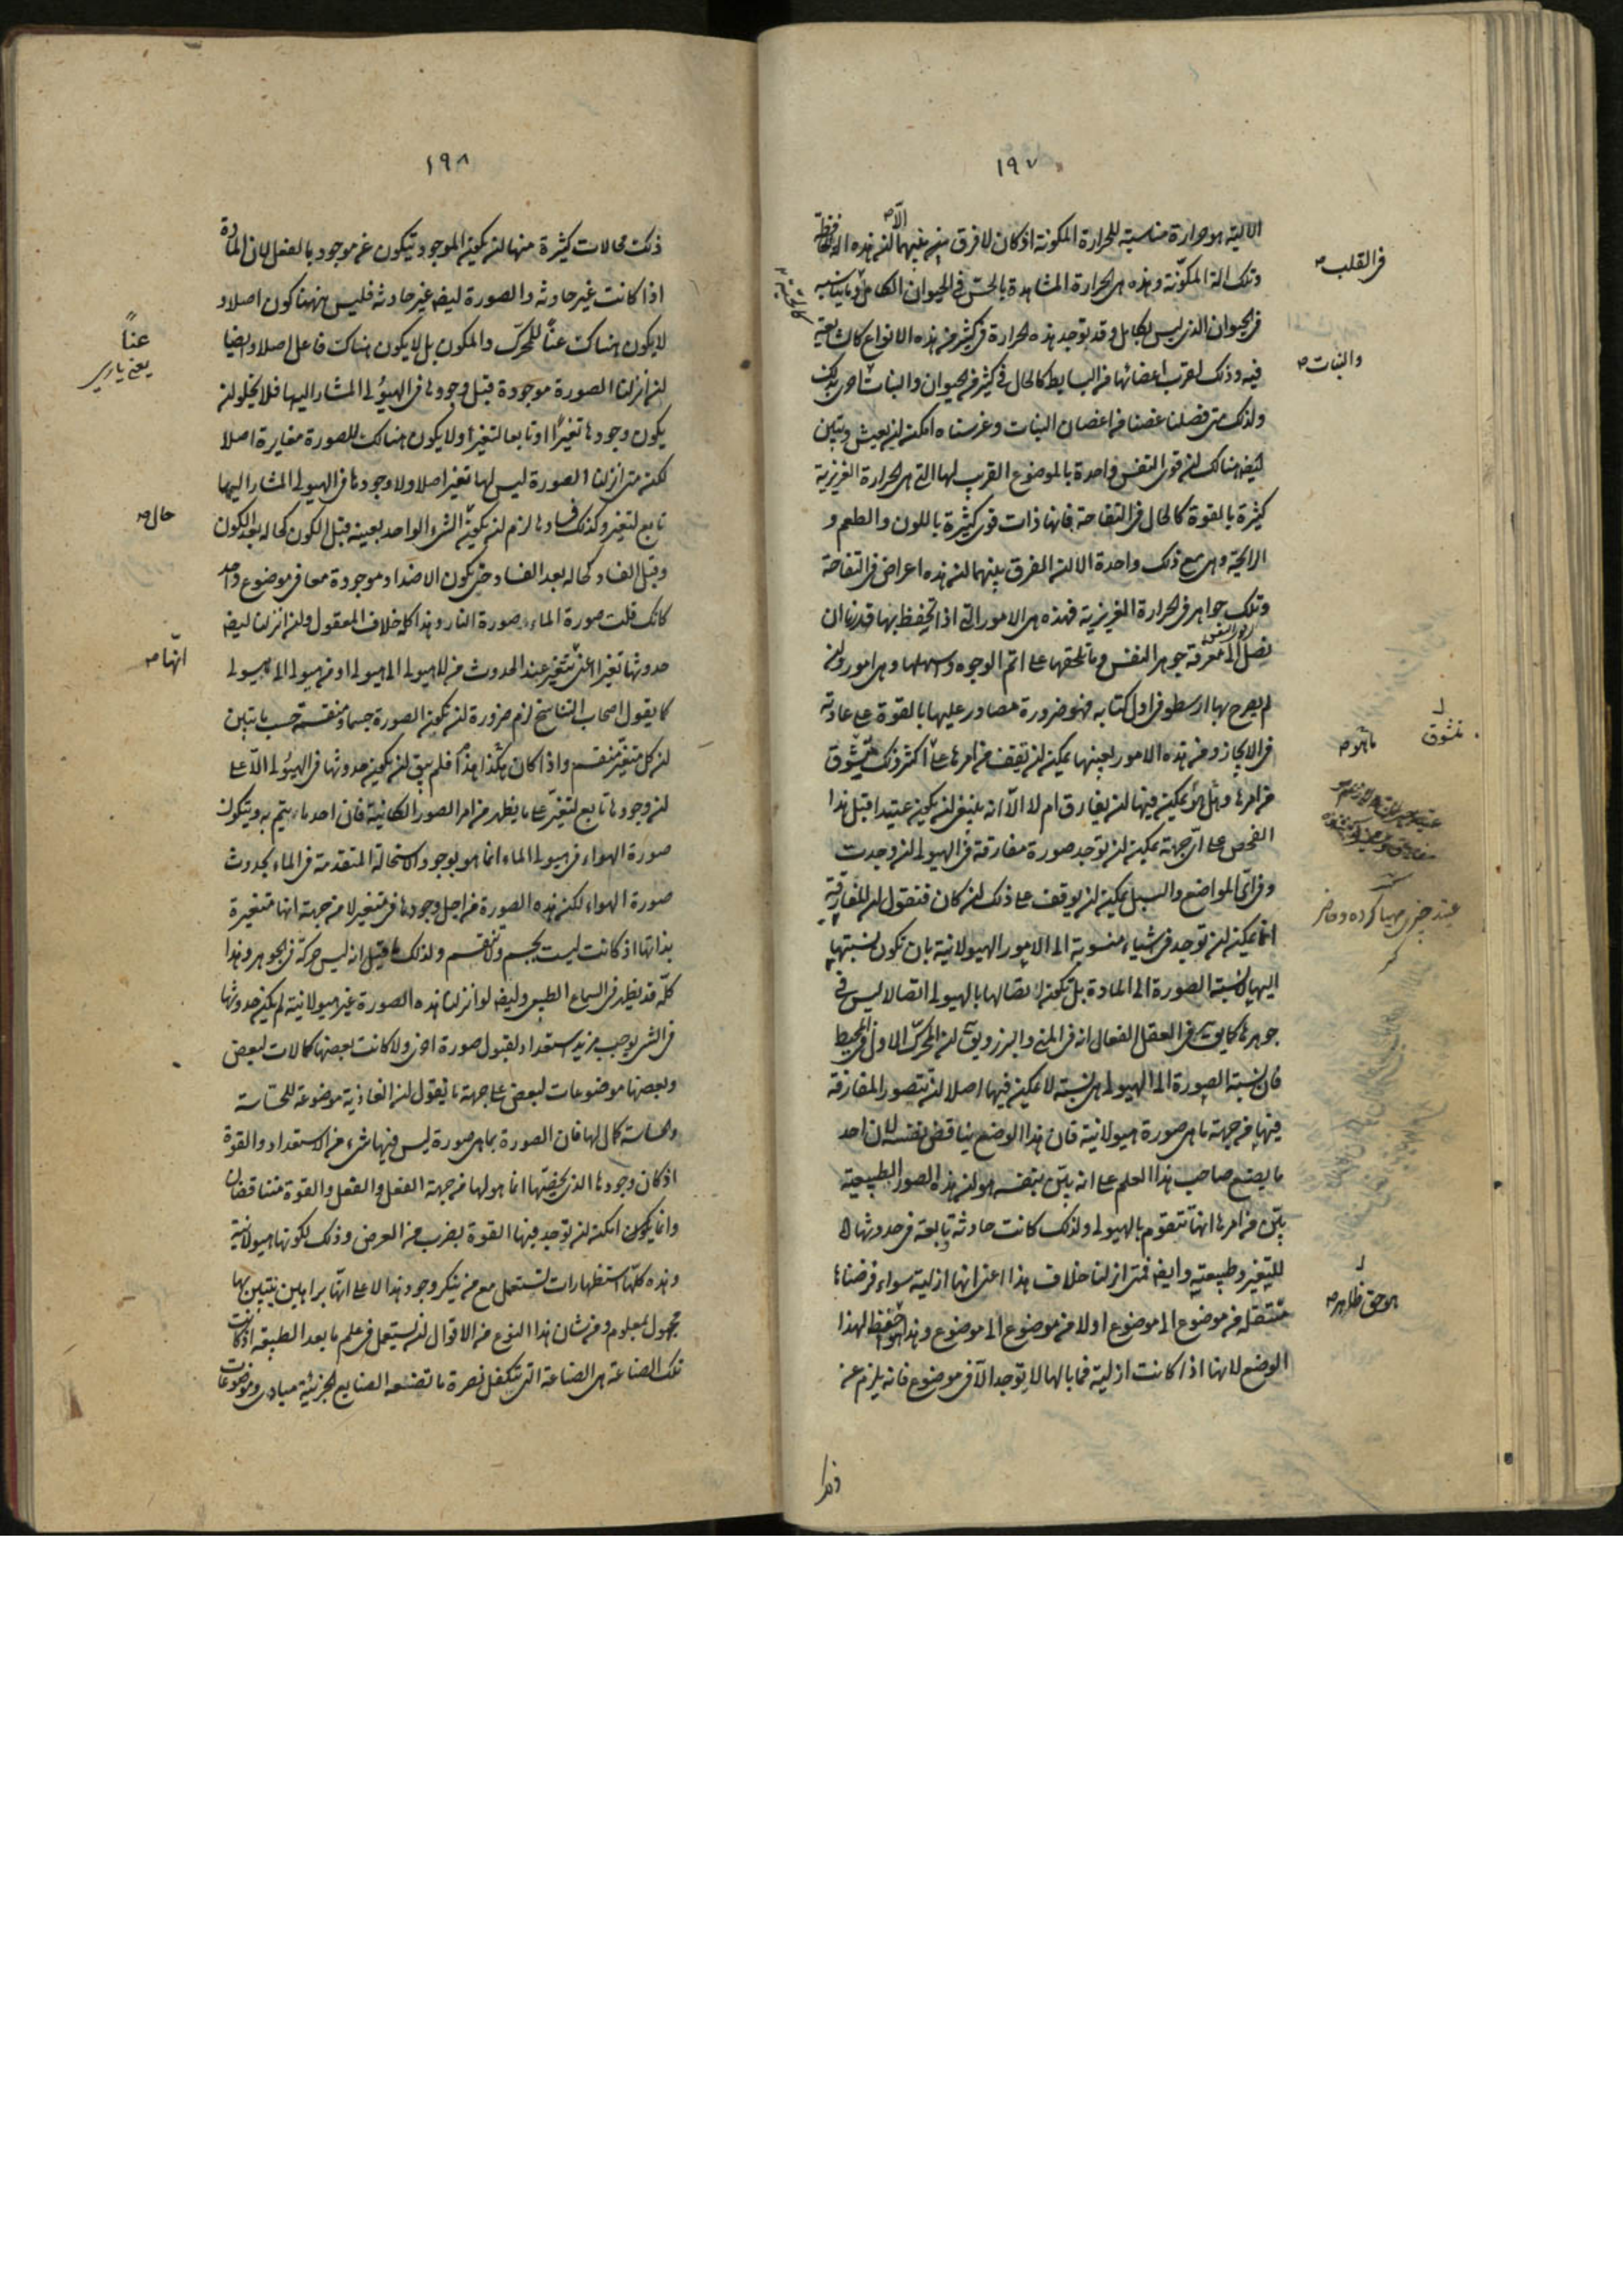 ١٩٧
الالية هو حرارة مناسبة للحرارة المكونة اذ كان لا فرق بينهما الا ان هذه الة الحافظة
وتلك الة المكوّنة وهذه هى الحرارة المشاهدة بالحسّ فى الحيوان الكامل وما يناسبه
فى الحيوان الذى ليس بكامل وقد توجد هذه الحرارة فى كثير من هذه الانواع كالشايعة
فيه وذلك لقرب اعضائها من البسايط كالحال فى كثير من الحيوان والنبات احرى بذلك
ولذلك متى فصلنا غصنا من اغصان النبات وغرسناه امكنه ان يعيش وتبين
ايضا هنالك ان قوى النفس واحدة بالموضوع القريب لها التى هى الحرارة الغريزية
كثيرة بالقوة كالحال فى التفاحة فانها ذات قوى كثيرة باللون والطعم و
الرايحة وهى مع ذلك واحدة الا ان الفرق بينهما ان هذه اعراض فى التفاحة
وتلك جواهر فى الحرارة الغريزية فهذه هى الامور التى اذا تحفظ بها قدرنا ان
نصل الى معرفة جوهر النفس وما يلحقها على اتم الوجوه واسهلها وهى امور وان
لم يصرح بها ارسطو فى اول كتابه فهو ضرورة مصادر عليها بالقوة على عادته
فى الايجاز ومن هذه الامور بعينها يمكن ان نقف من امرها على اكثر ذلك تشوّق
من امرها وهل يمكن فيها ان يفارق ام لا الّا انه ينبغى ان يكون عتيدا قبل هذا
الفحص على اىّ جهة يمكن ان توجد صورة مفارقة فى الهيولى ان وجدت
وفى اىّ المواضع والسبل يمكن ان يوقف على ذلك ان كان فنقول ان المفارقة
انما يمكن ان توجد فى شىء منسوبة الى الامور الهيولانية بان تكون نسبتها
اليها لا نسبة الصورة الى المادة بل يكون اتصالها بالهيولى اتصالا ليس فى
جوهرها كما يقال فى العقل الفعال انه فى المنى والبزر ويقال ان المحرك الاول فى المحيط
فان نسبة الصورة الى الهيولى هى نسبة لا يمكن فيها اصلا ان تتصور المفارقة
فيها من جهة ما هى صورة هيولانية فان هذا الوضع يناقض نفسه لان احد
ما يضع صاحب هذا العلم على انه بيّن بنفسه هو ان هذه الصور الطبيعية
بيّن من امرها انها تتقوم بالهيولى ولذلك كانت حادثة وتابعة فى حدوثها
للتغير وطبيعته وايضا فمتى انزلنا خلاف هذا اعنى انها ازلية سواء فرضناها
متنقلة من موضوع الى موضوع او لا من موضوع الى موضوع وهذا احفظ لهذا
الوضع لانها اذا كانت ازلية فما بالها لا توجد الا فى موضوع فانه يلزم عن
فى القلب صح
والنبات صح
نتشوق
عتيد چيزى مهيا كرده وحاضر
هو احق ظاهرا صح
١٩٨
ذلك محالات كثيرة منها ان يكون الموجود يتكون عن موجود بالفعل لان المادة
اذا كانت غير حادثة والصورة ايضا غير حادثة فليس ههنا كون اصلا و
لا يكون هناك عناً للمحرّك والمكون بل لا يكون هناك فاعل اصلا وايضا
ان انزلنا الصورة موجودة قبل وجودها فى الهيولى المشار اليها فلا يخلو ان
يكون وجودها تغيّرا او تابعا لتغير او لا يكون هنالك للصورة مغايرة اصلا
لكن متى انزلنا الصورة ليس لها تغير اصلا ولا وجودها فى الهيولى المشار اليها
تابع لتغير وكذلك فسادها لزم ان يكون الشىء الواحد بعينه قبل الكون كحاله بعد الكون
وقبل الفساد كحاله بعد الفساد حتى يكون الاضداد موجودة معا فى موضوع واحد
كانك قلت صورة الماء وصورة النار وهذا كله خلاف المعقول وان انزلنا ايضا
حدوثها تغيرا اعنى تتغير عند الحدوث من لا هيولى الى هيولى او من هيولى الى هيولى
كما يقول اصحاب التناسخ لزم ضرورة ان تكون الصورة جسما ومنقسمة حسب ما تبين
ان كل متغيّر منقسم واذا كان هكذا هذا فلم يبق ان يكون حدوثها فى الهيولى الّا على
ان وجودها تابع لتغيّر على ما يظهر من امر الصور الكائنة فان احد ما يتم به ويتكون
صورة الهواء فى هيولى الماء انما هو بوجود الاستحالة المتقدمة فى الماء لحدوث
صورة الهواء لكن هذه الصورة من اجل وجودها فى متغير لا من جهة انها متغيرة
بذاتها اذ كانت ليست بجسم ولا منقسم ولذلك ما قيل انه ليس حركة فى الجوهر وهذا
كلّه قد يظهر فى السماع الطبيعى وايضا لو انزلنا هذه الصورة غير هيولانية لم يكن حدوثها
فى الشىء يوجب مزيد استعداد لقبول صورة اخرى ولا كانت بعضها كمالات لبعض
وبعضها موضوعات لبعض على جهة ما نقول ان الغاذية موضوعة للحساسة
والحساسة كمال لها فان الصورة بما هى صورة ليس فيها شىء من الاستعداد والقوة
اذ كان وجودها الذى يخصّها انما هو لها من جهة الفعل والفعل والقوة متناقضان
وانما يمكن ان توجد فيها القوة بضرب من العرض وذلك لكونها هيولانية
وهذه كلّها استظهارات تستعمل مع من ينكر وجود هذا لا على انها براهين يتبيّن بها
مجهول بمعلوم ومن شان هذا النوع من الاقوال ان يستعمل فى علم ما بعد الطبيعة اذ كانت
تلك الصناعة هى الصناعة التى تتكفل نصرة ما تضعه الصنايع الجزئية مبادى وموضوعات
عناً
يعنى يارى
حال صح
انها صح
وهذا